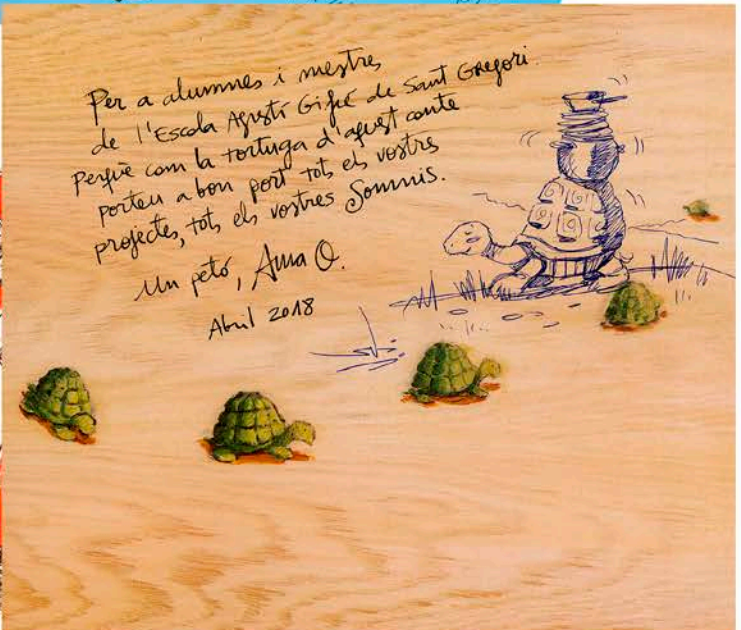 Per a alumnes i mestres
de l'Escola Agustí Gifré de Sant Gregori.
Perquè com la tortuga d'aquest conte
porteu a bon port tots els vostres
projectes, tots els vostres Somnis.
Un petó, Anna O.
Abril 2018